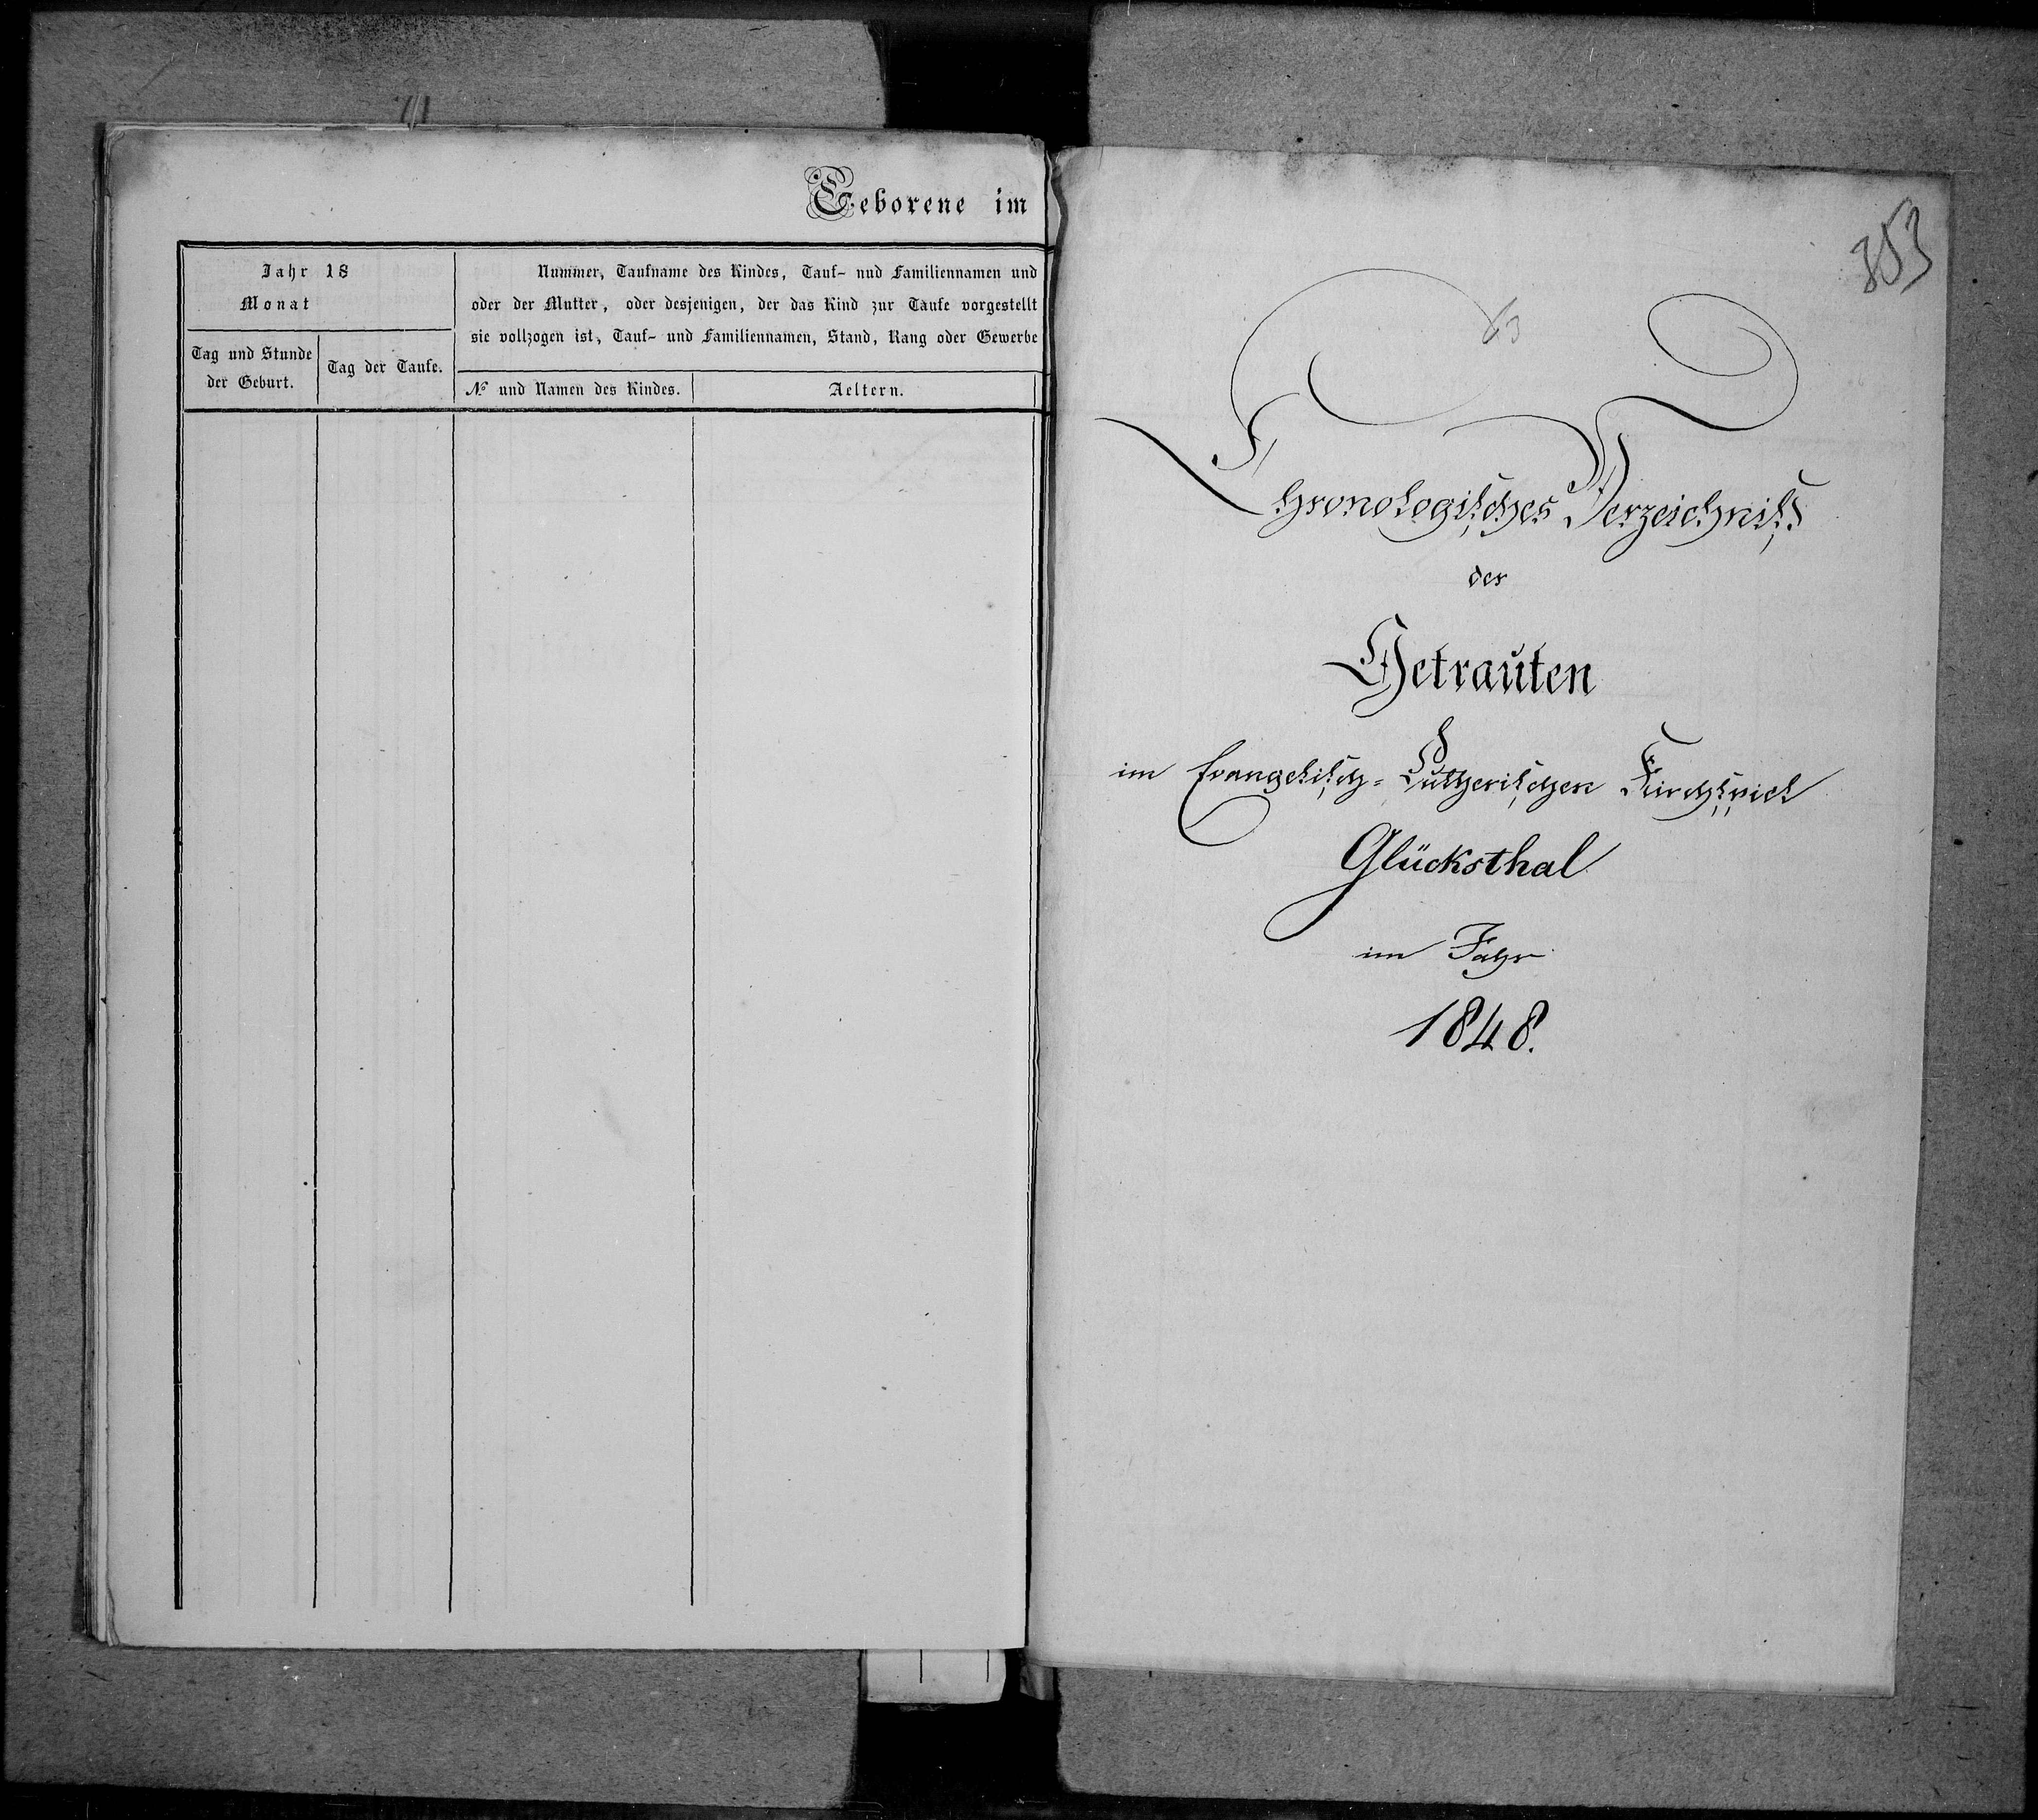 Geborene im
Jahr 18
Monat
Tag und Stunde
der Geburt.
Tag der Taufe.
Nummer, Taufname des Kindes, Tauf- nud Familiennamen und
oder der Mutter, oder desjenigen, der das Kind zur Taufe vorgestellt
sie vollzogen ist, Tauf- und Familiennamen, Stand, Rang oder Gewerbe
№ und Namen des Kindes.
Aeltern.
353
Chronologisches Verzeichniss
der
Getrauten
im Evangelisch-Lutherischen Kirchspiel
Glücksthal
im Jahr
1848.